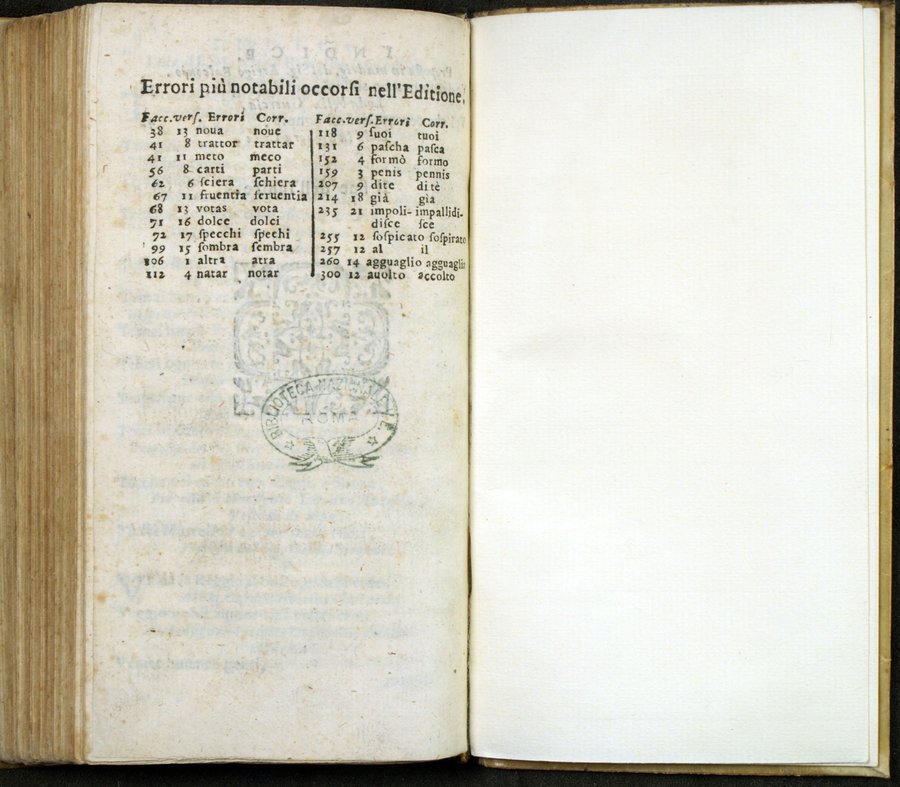 Errori più notabili occorſi nell'Editione.
Facc. verſ. Errori Corr.
38 13 noua noue
41 8 trattor trattar
41 11 meto meco
56 8 carti parti
62 6 ſciera ſchiera
67 11 fruentia ſeruentia
68 13 votas vota
71 16 dolce dolci
72 17 ſpecchi ſpechi
99 15 ſombra ſembra
106 1 altra atra
112 4 natar notar
Facc. verſ. Errori Corr.
118 9 ſuoi tuoi
131 6 paſcha paſca
152 4 formò formo
159 3 penis pennis
207 9 dite di tè
214 18 già gia
235 21 impoli- impallidi-
diſce ſce
255 12 ſoſpicato ſoſpirato
257 12 al il
260 14 agguaglio agguaglia
300 12 auolto accolto
BIBLIOTECA NAZIONALE
ROMA